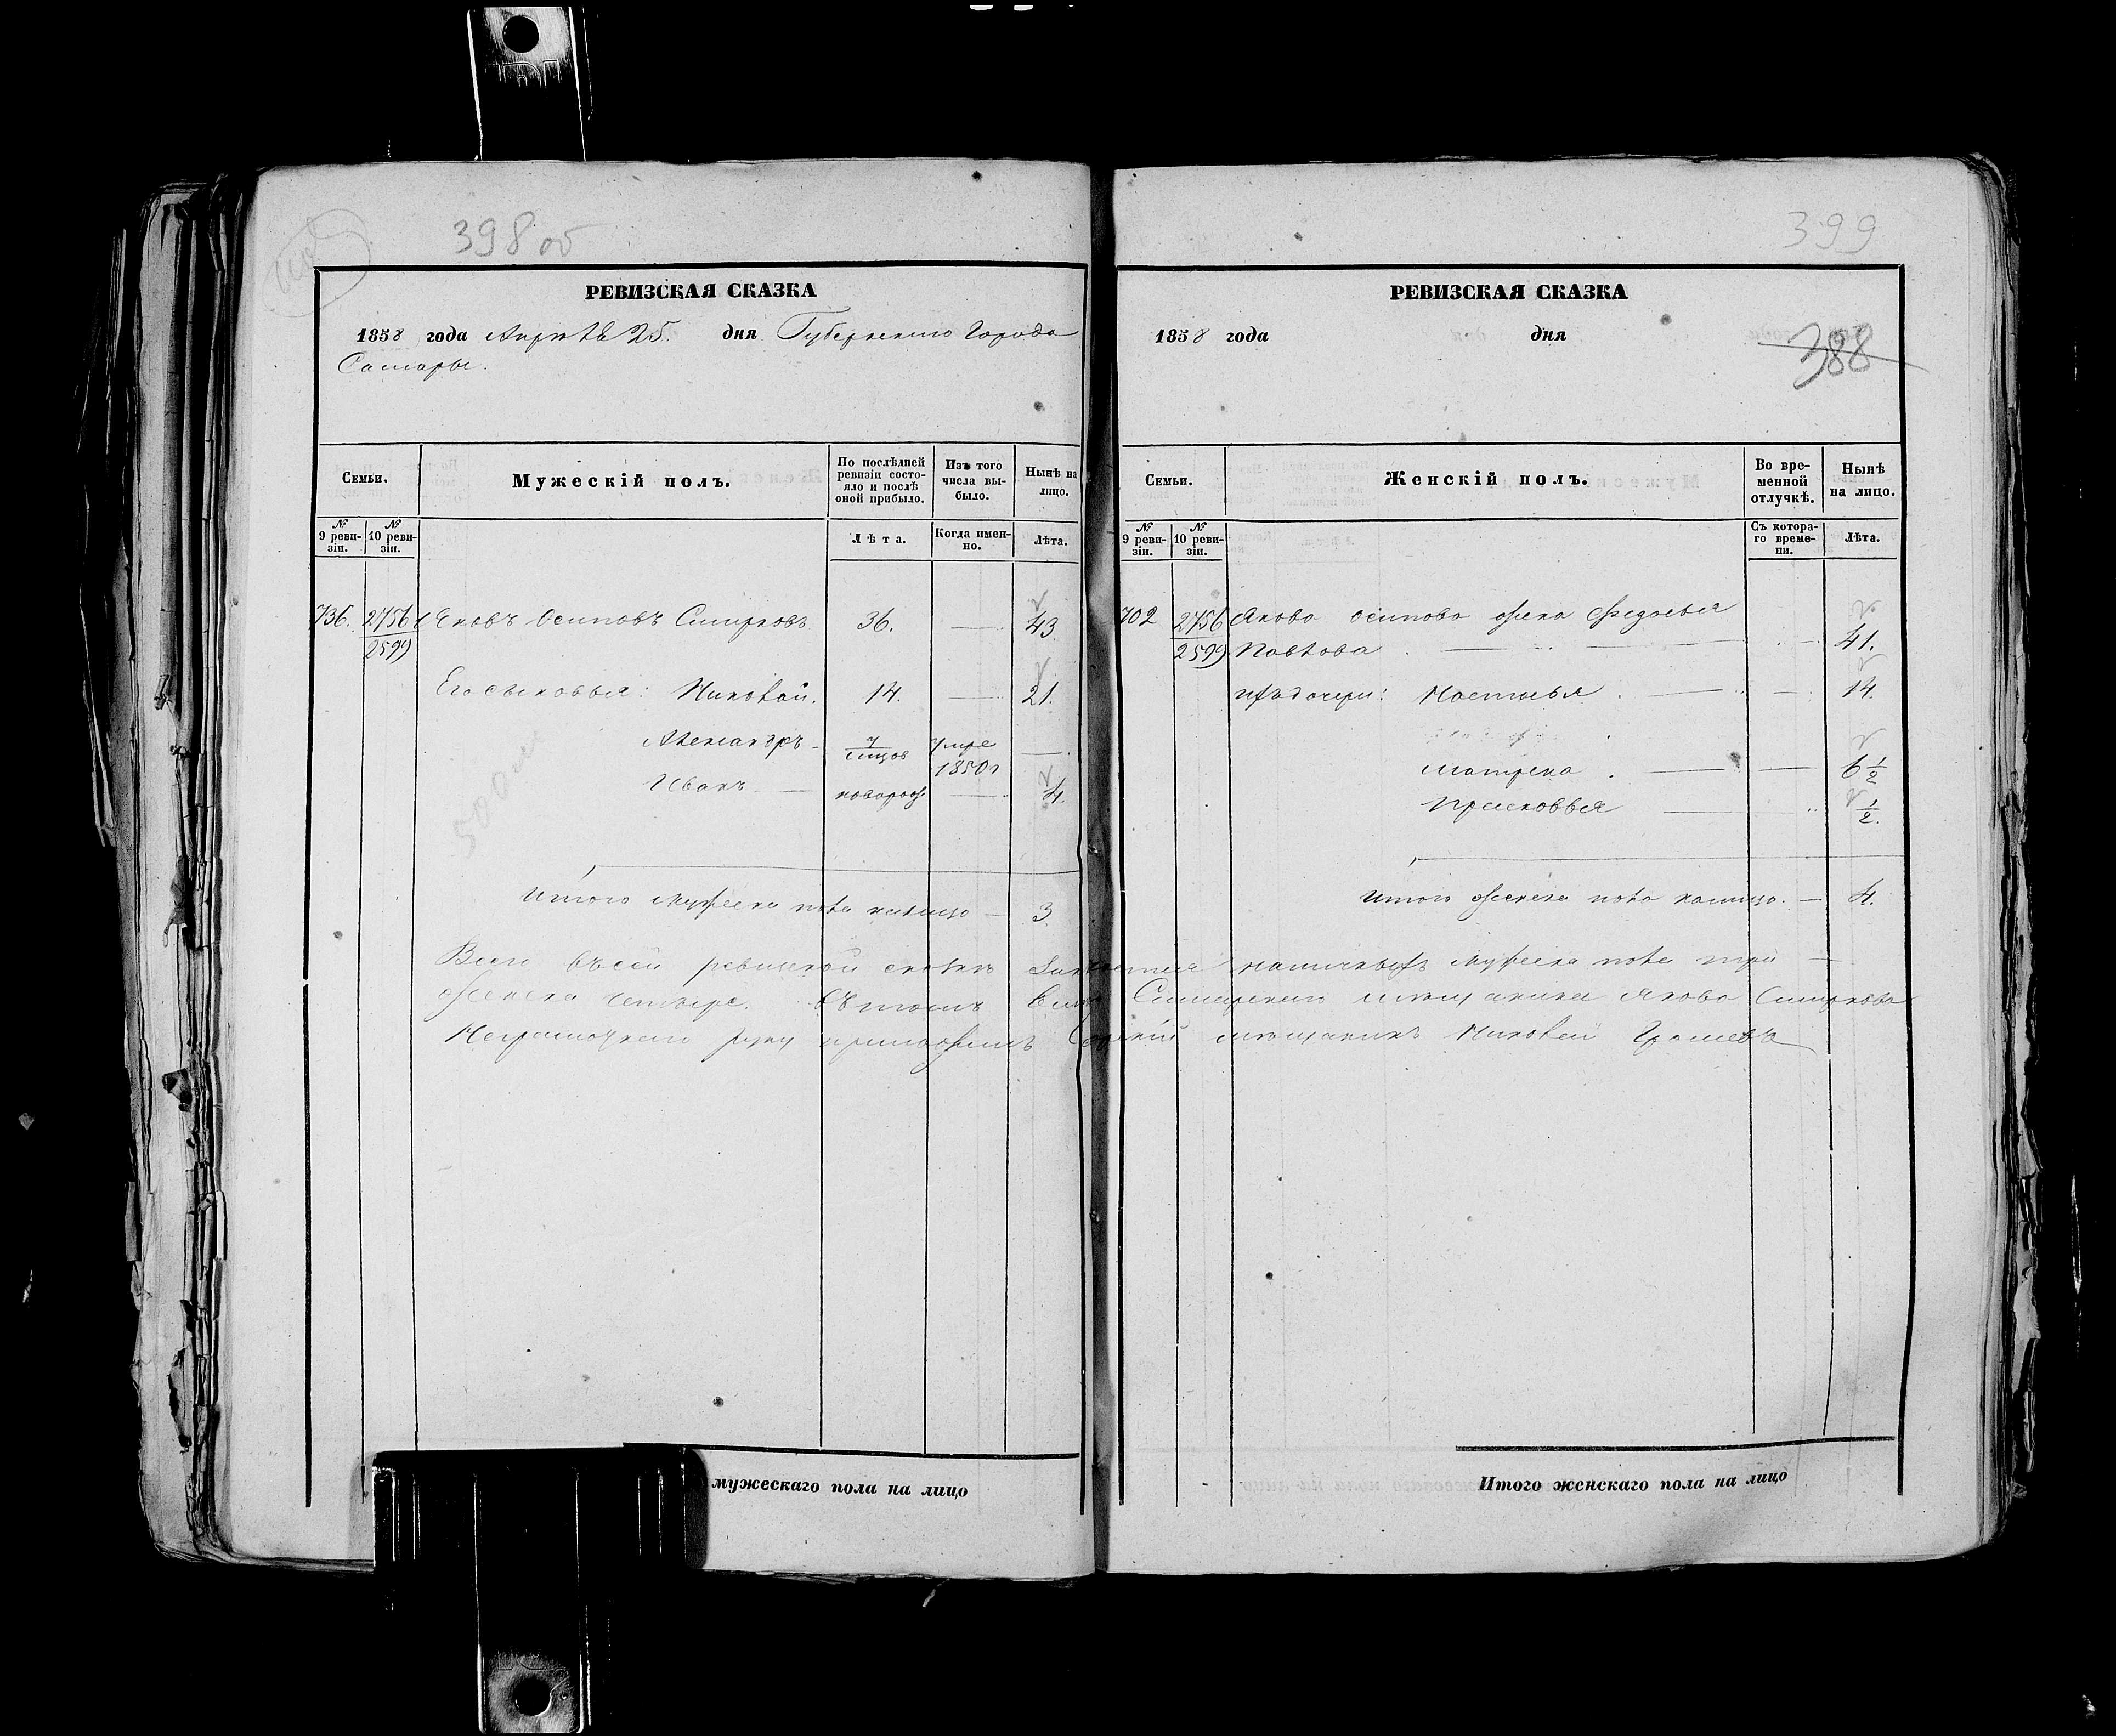 398 об
РЕВИЗСКАЯ СКАЗКА
1858 года Апреля 25. дня Губернскаго Города
Самары.
Семьи.
Мужескій полъ.
По послѣдней ревизіи состояло и послѣ оной прибыло.
Изъ того числа выбыло.
Нынѣ на лицо.
№ 9 ревизіи.
№ 10 ревизіи.
Лѣта.
Когда именно.
Лѣта.
736. 2756/2599 Яковъ Осиповъ Смирновъ 36. — 43
Его сыновья: Николай. 14. — 21.
Александръ 7/мѣсяцов умре 1850 г —
Иванъ — новорож. — 4.
Итого мужеска пола налицо — 3
399
РЕВИЗСКАЯ СКАЗКА
1858 года дня
388
Семьи.
Женскій полъ.
Во временной отлучкѣ.
Нынѣ на лицо.
№ 9 ревизіи.
№ 10 ревизіи.
Съ котораго времени.
Лѣта.
702 2756/2599 Якова Осипова жена Федосья
Павлова 41.
ихъ дочери: Настасья 14.
Матрена 6 1/2
Прасковья 1/2.
Итого женска пола налицо. — 4.
Всего въ сей ревизской сказкѣ наличныхъ мужеска пола три —
женска четыре. Въ томъ Самарскаго мещанина Якова Смирнова
Неграмотнаго руку приложилъ мещанинъ Николай
мужескаго пола на лицо
Итого женскаго пола на лицо